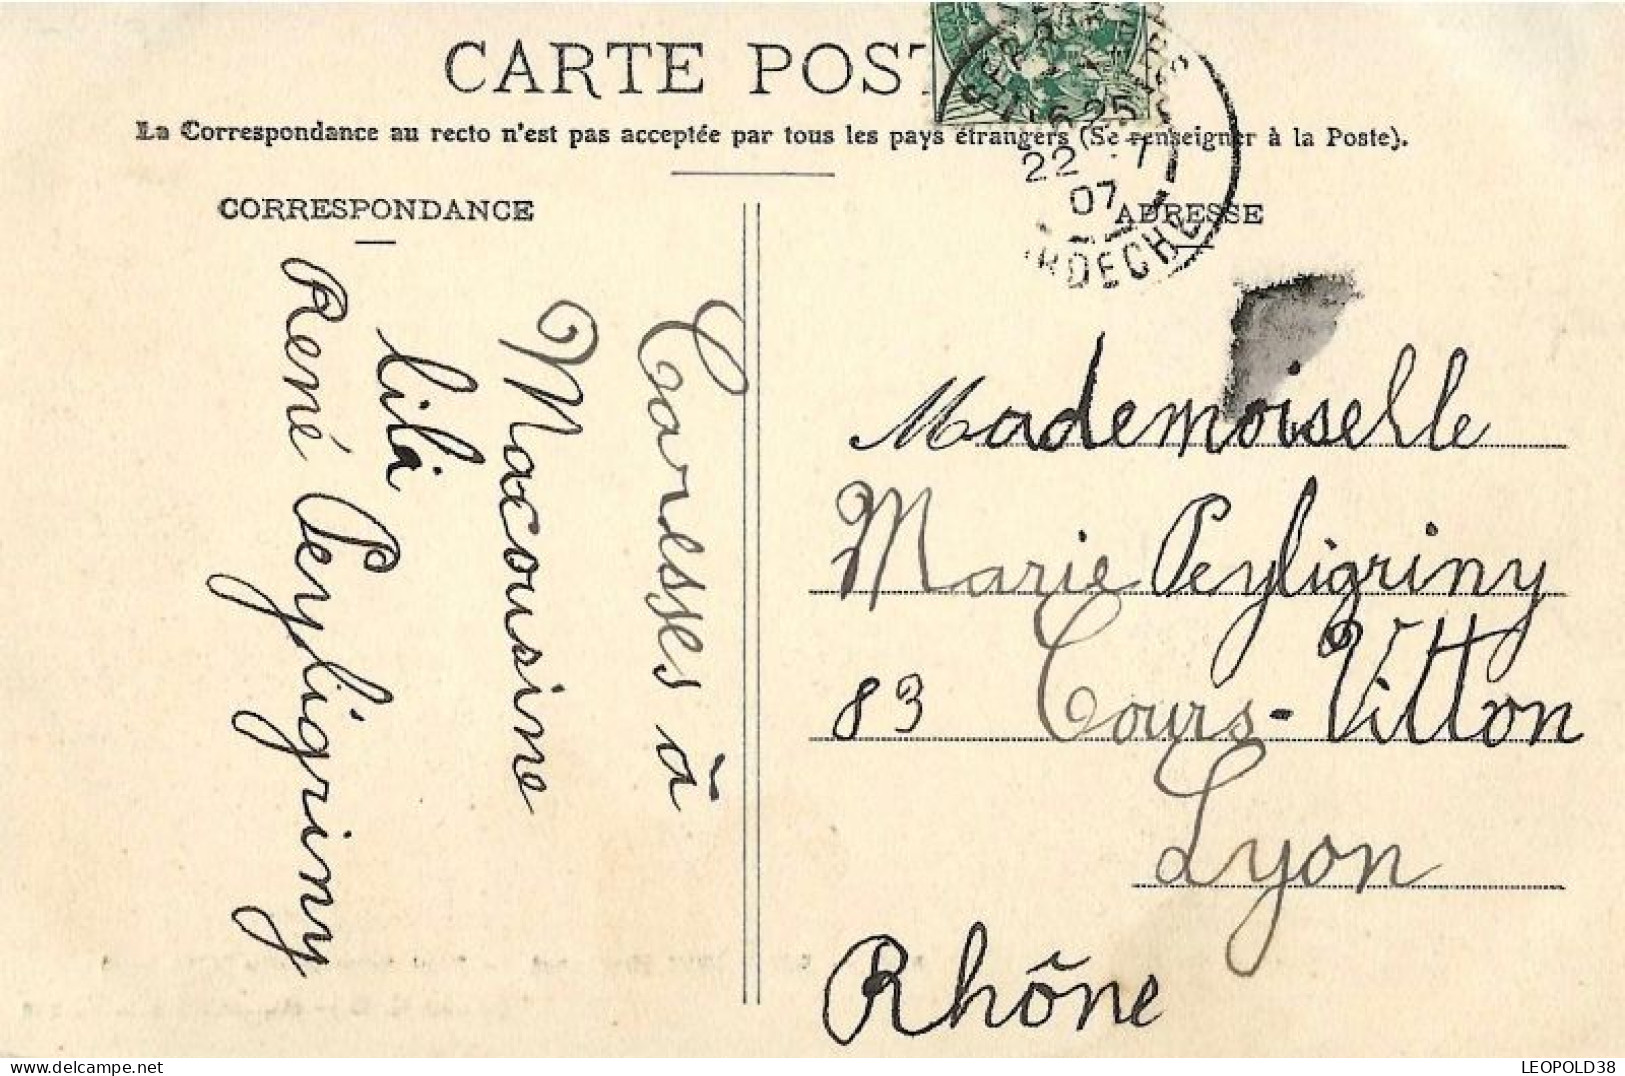 CARTE POST
La Correspondance au recto n'est pas acceptée par tous les pays étrangers (Se renseigner à la Poste).
CORRESPONDANCE
ADRESSE
6 25
22 - 7
07
ARDECHE
Caresses à
Macousine
lili
René Peyligriny
Mademoiselle
Marie Peyligriny
83 Cours-Vitton
Lyon
Rhône
delcampe.net
LEOPOLD38